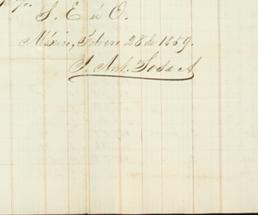 S. E. ú O.
México, Febrero 28 de 1859.
J. Ant.